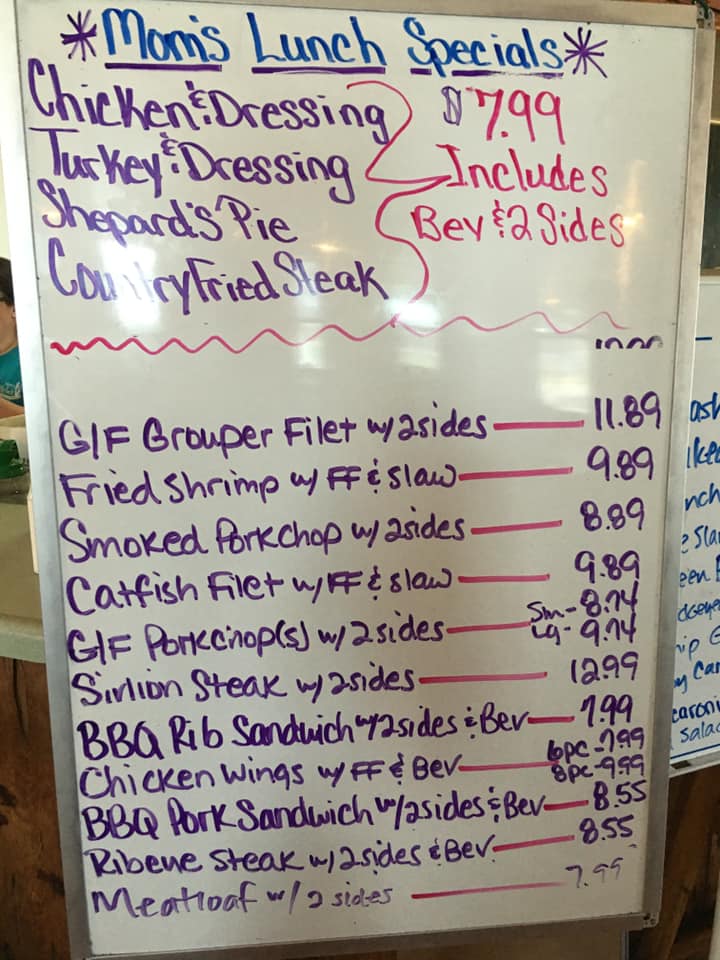 *Mom's Lunch Specials*
Chicken & Dressing
Turkey & Dressing
Shepard's Pie
Country Fried Steak
$7.99
Includes
Bev & 2 Sides
G/F Grouper Filet w/ 2sides — 11.89
Fried Shrimp w/ FF & Slaw — 9.89
Smoked Porkchop w/ 2sides — 8.89
Catfish Filet w/ FF & slaw — 9.89
G/F Porkchop(s) w/ 2 sides — Sm - 8.74
Lg - 9.74
Sirlion Steak w/ 2sides — 12.99
BBQ Rib Sandwich w/ 2sides & Bev — 7.99
Chicken Wings w/ FF & Bev — 6pc - 7.99
8pc - 9.99
BBQ Pork Sandwich w/ 2sides & Bev — 8.55
Ribeye Steak w/ 2sides & Bev — 8.55
Meatloaf w/ 2 sides — 7.99